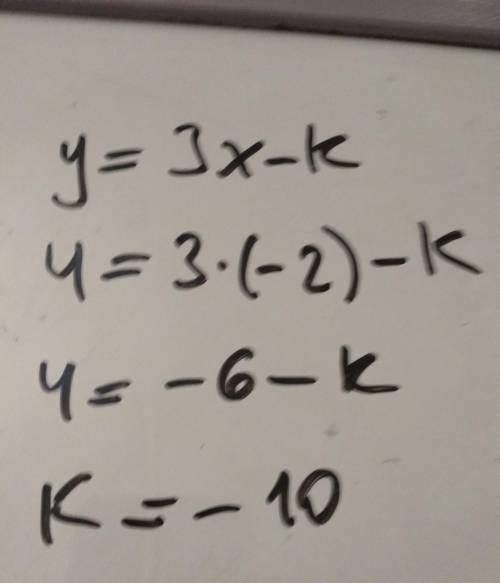 y = 3x - k
4 = 3·(-2) - k
4 = -6 - k
k = -10